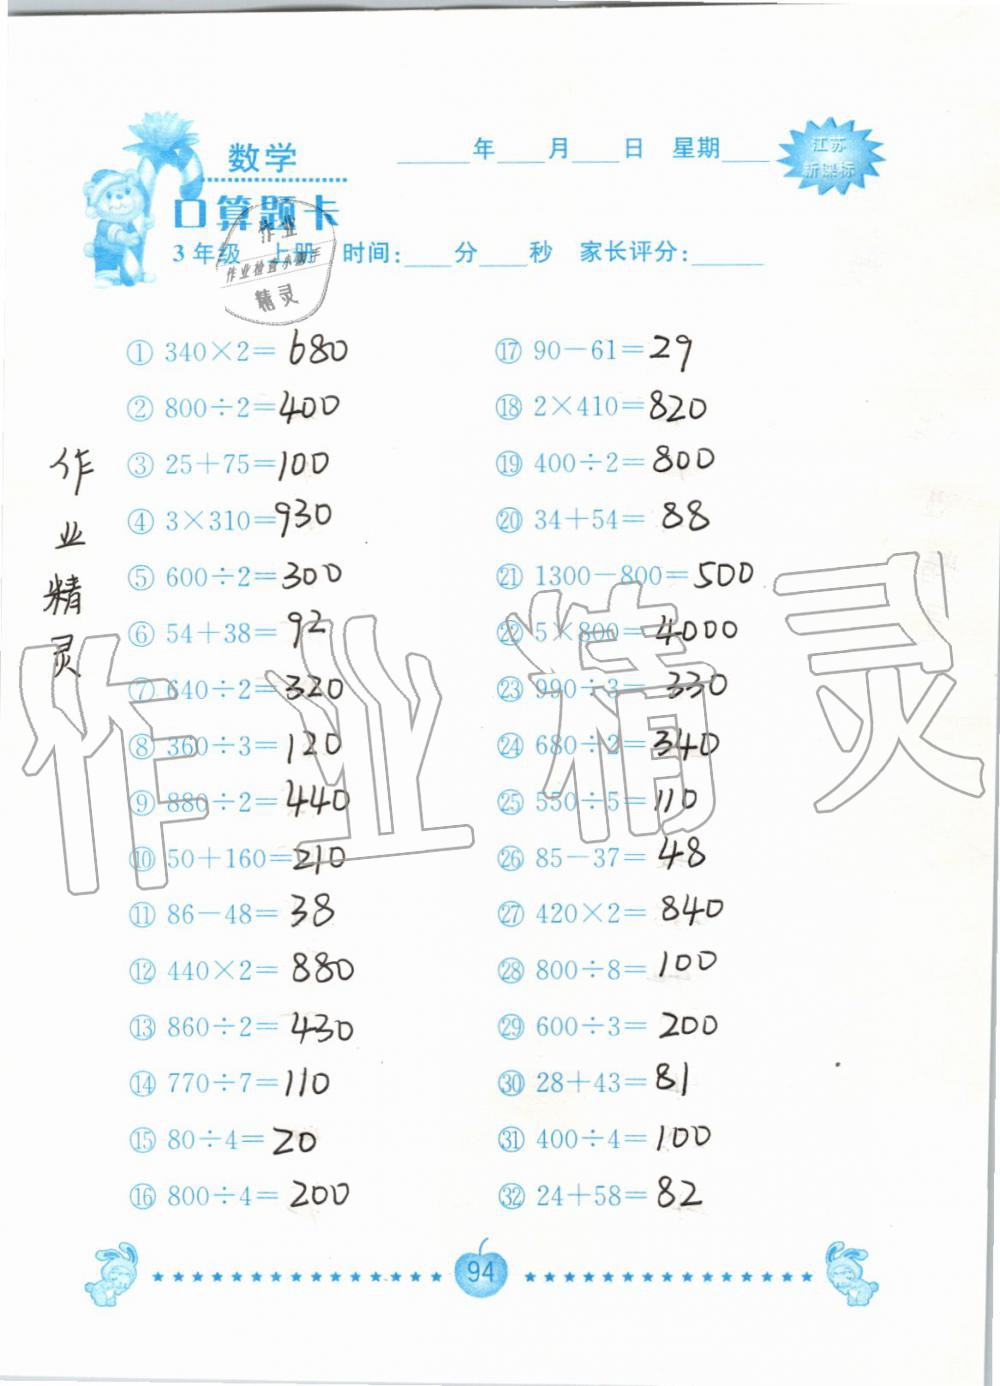 数学
口算题卡
3年级 上册 时间:____分____秒 家长评分:______
______年____月____日 星期____
江苏
新课标
作业
作业检查小帮手
精灵
① 340×2=680
② 800÷2=400
③ 25+75=100
④ 3×310=930
⑤ 600÷2=300
⑥ 54+38=92
⑦ 640÷2=320
⑧ 360÷3=120
⑨ 880÷2=440
⑩ 50+160=210
⑪ 86-48=38
⑫ 440×2=880
⑬ 860÷2=430
⑭ 770÷7=110
⑮ 80÷4=20
⑯ 800÷4=200
⑰ 90-61=29
⑱ 2×410=820
⑲ 400÷2=800
⑳ 34+54=88
㉑ 1300-800=500
㉒ 5×800=4000
㉓ 990÷3=330
㉔ 680÷2=340
㉕ 550÷5=110
㉖ 85-37=48
㉗ 420×2=840
㉘ 800÷8=100
㉙ 600÷3=200
㉚ 28+43=81
㉛ 400÷4=100
㉜ 24+58=82
作业精灵
作业精灵
94